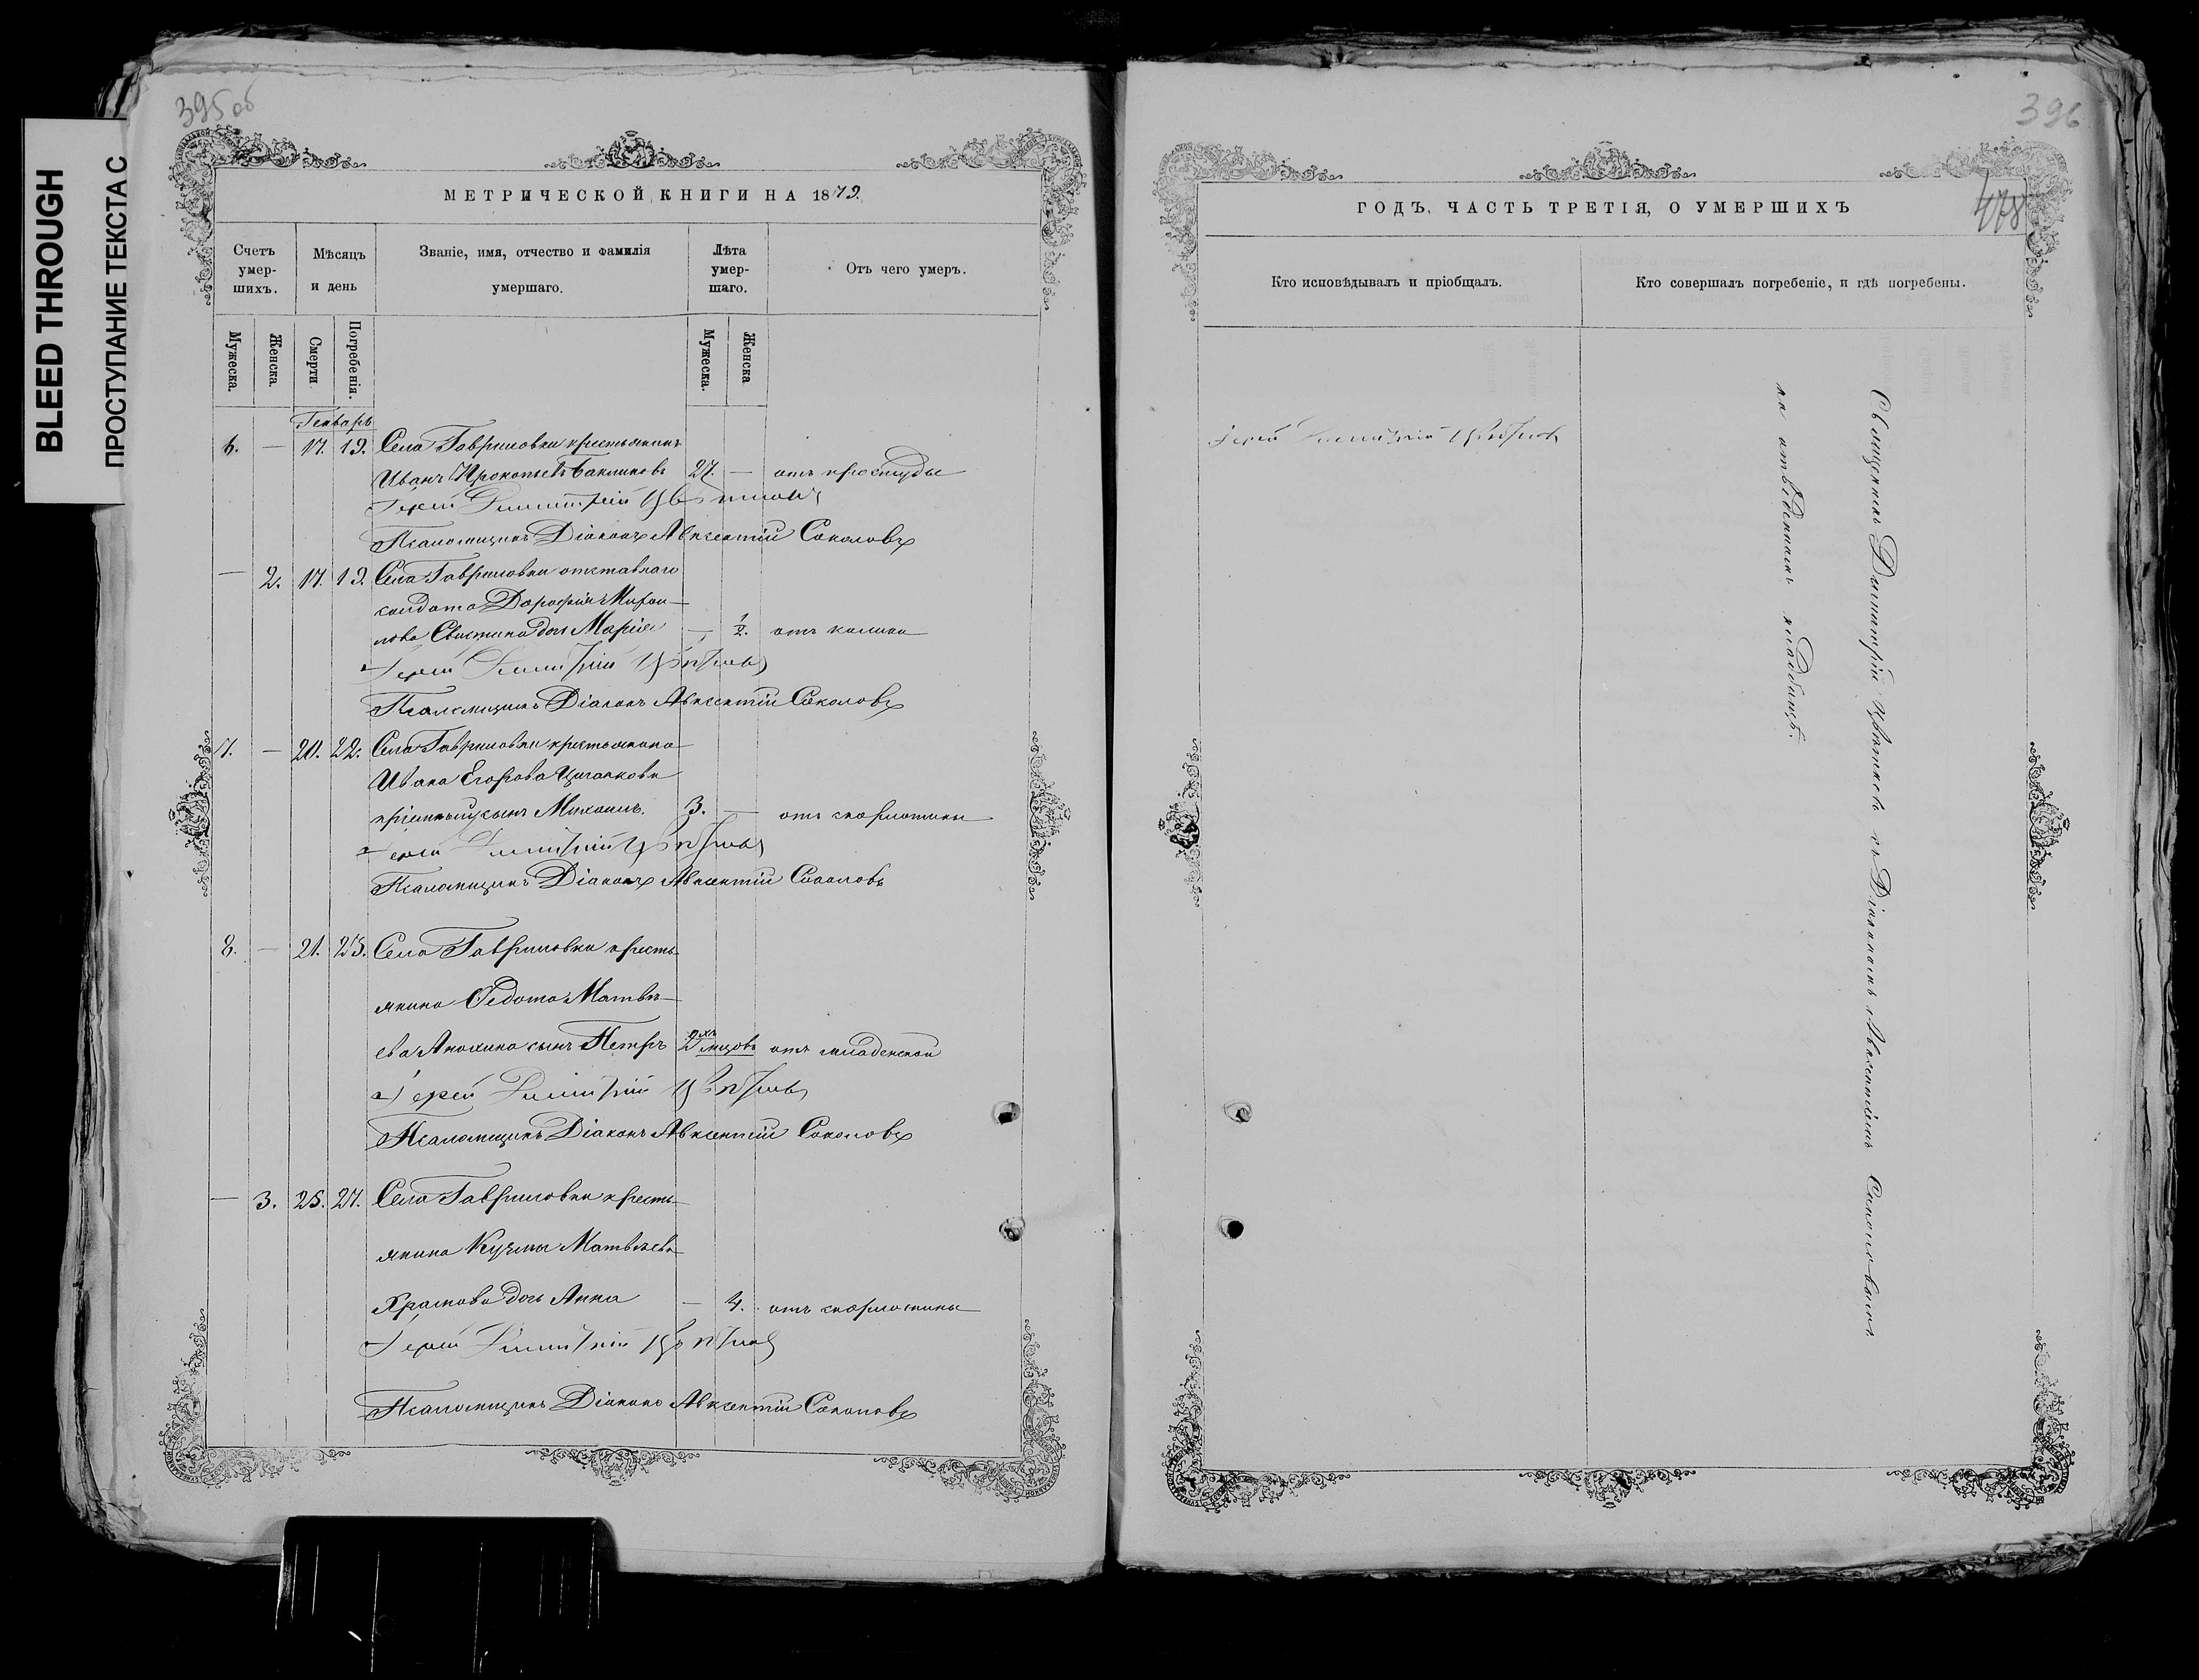 BLEED THROUGH
ПРОСТУПАНИЕ ТЕКСТА С
395 об
МЕТРИЧЕСКОЙ КНИГИ НА 1879.
Счетъ умер-шихъ.
Мѣсяцъ и день
Званіе, имя, отчество и фамилія умершаго.
Лѣта умер-шаго.
Отъ чего умеръ.
Мужеска.
Женска.
Смерти
Погребенія.
Мужеска.
Женска
Генварь
6. — 17. 19. Села Гавриловки крестьянинъ
Иванъ Прокопьевъ Баклановъ 27. — отъ простуды
Іерей Димитрій Цвѣтковъ
Псаломщикъ Діаконъ Авксентій Соколовъ
— 2. 17. 19. Села Гавриловки отставнаго
солдата Дорофея Михаи-
лова дочь Марія — ½. отъ кашля
Іерей Димитрій Цвѣтковъ
Псаломщикъ Діаконъ Авксентій Соколовъ
7. — 20. 22. Села Гавриловки крестьянина
Ивана Егорова
пріемный сынъ Михаилъ. 3. — отъ скарлатины
Іерей Димитрій Цвѣтковъ
Псаломщикъ Діаконъ Авксентій Соколовъ
8. — 21. 23. Села Гавриловки кресть-
янина Ѳедота Матвѣ-
ева Анохина сынъ Петръ 2хъ мцовъ отъ младенской
Іерей Димитрій Цвѣтковъ
Псаломщикъ Діаконъ Авксентій Соколовъ
— 3. 25. 27. Села Гавриловки кресть-
янина Кузмы Матвѣева
Храмова дочь Анна — 4. отъ скарлатины
Іерей Димитрій Цвѣтковъ
Псаломщикъ Діаконъ Авксентій Соколовъ
396
478
ГОДЪ, ЧАСТЬ ТРЕТІЯ, О УМЕРШИХЪ
Кто исповѣдывалъ и пріобщалъ.
Кто совершалъ погребеніе, и гдѣ погребены.
Іерей Димитрій Цвѣтковъ
Священникъ Димитрій Цвѣтковъ съ Діакономъ Авксентіемъ Соколовымъ
на отведенномъ кладбищѣ.